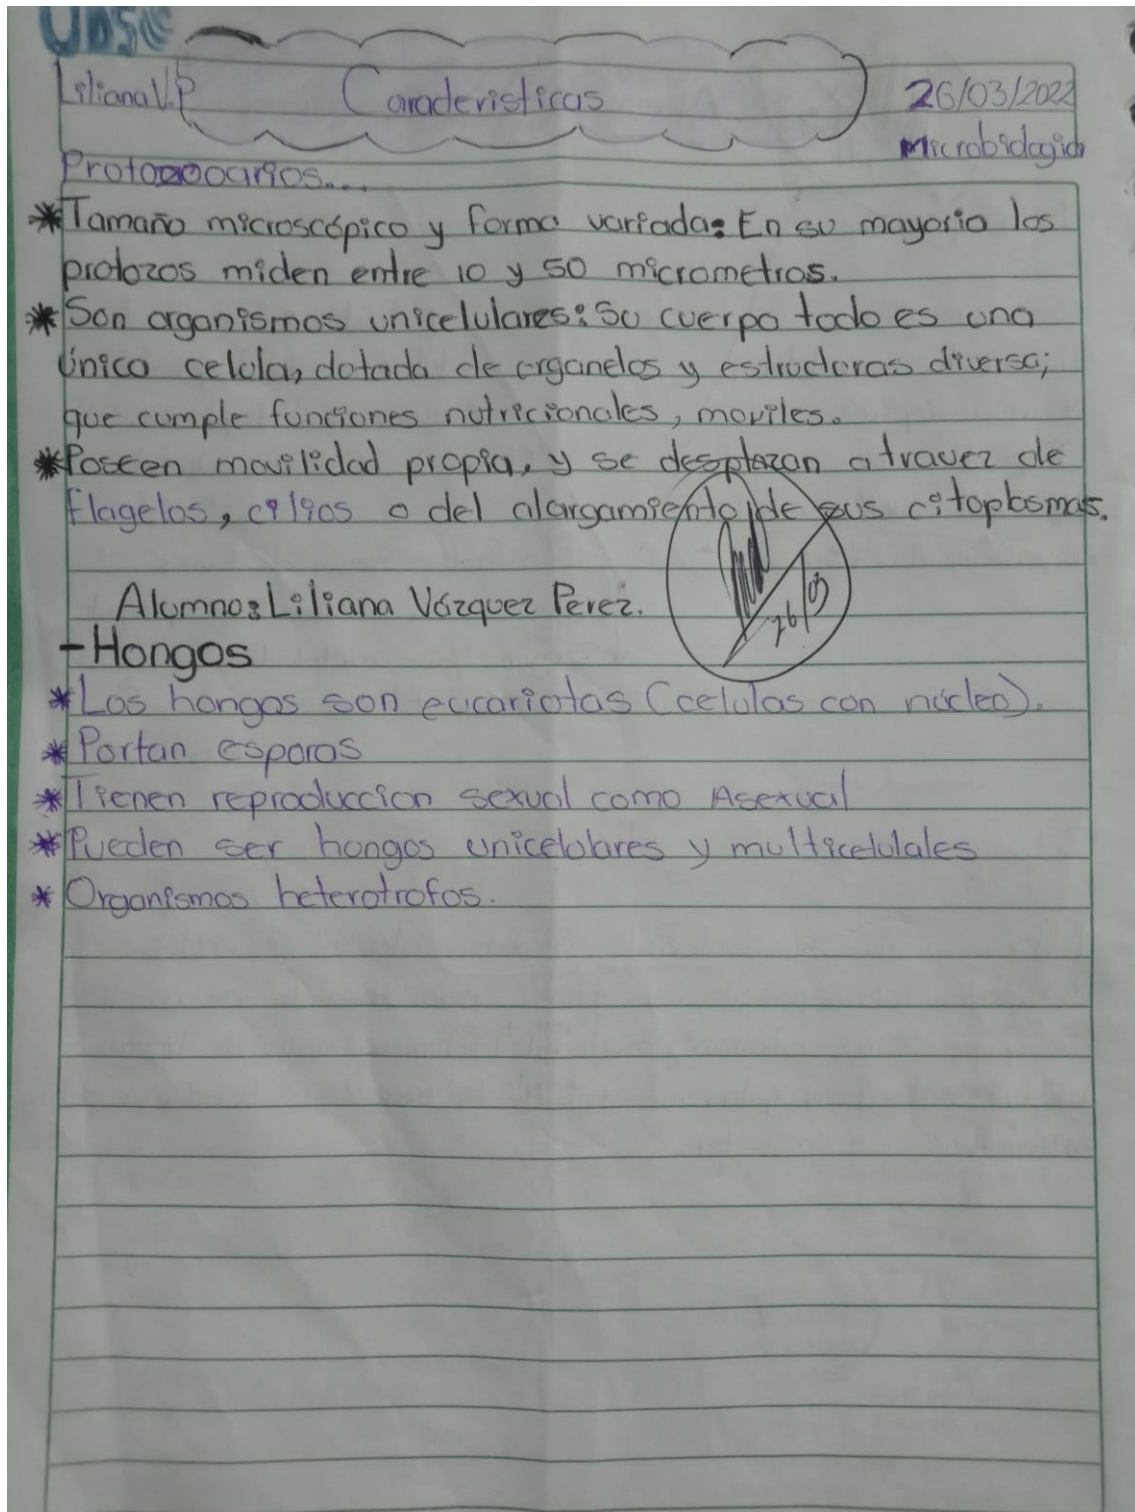 UDSC
Liliana V.P Caracteristicas 26/03/2022
Microbiologia
Protozoarios...
*Tamaño microscópico y forma variada: En su mayoria los
protozos miden entre 10 y 50 micrometros.
*Son organismos unicelulares: Su cuerpo todo es una
único celula, dotada de organelos y estructuras diversa;
que cumple funciones nutricionales, moviles.
*Poseen movilidad propia, y se desplazan a travez de
flagelos, cilios o del alargamiento de sus citoplasmas.
26/03
Alumno: Liliana Vázquez Perez.
- Hongos
*Los hongos son eucariotas (celulas con núcleo).
*Portan esporas
*Tienen reproduccion sexual como Asexual
*Pueden ser hongos unicelulares y multicelulales
*Organismos heterotrofos.